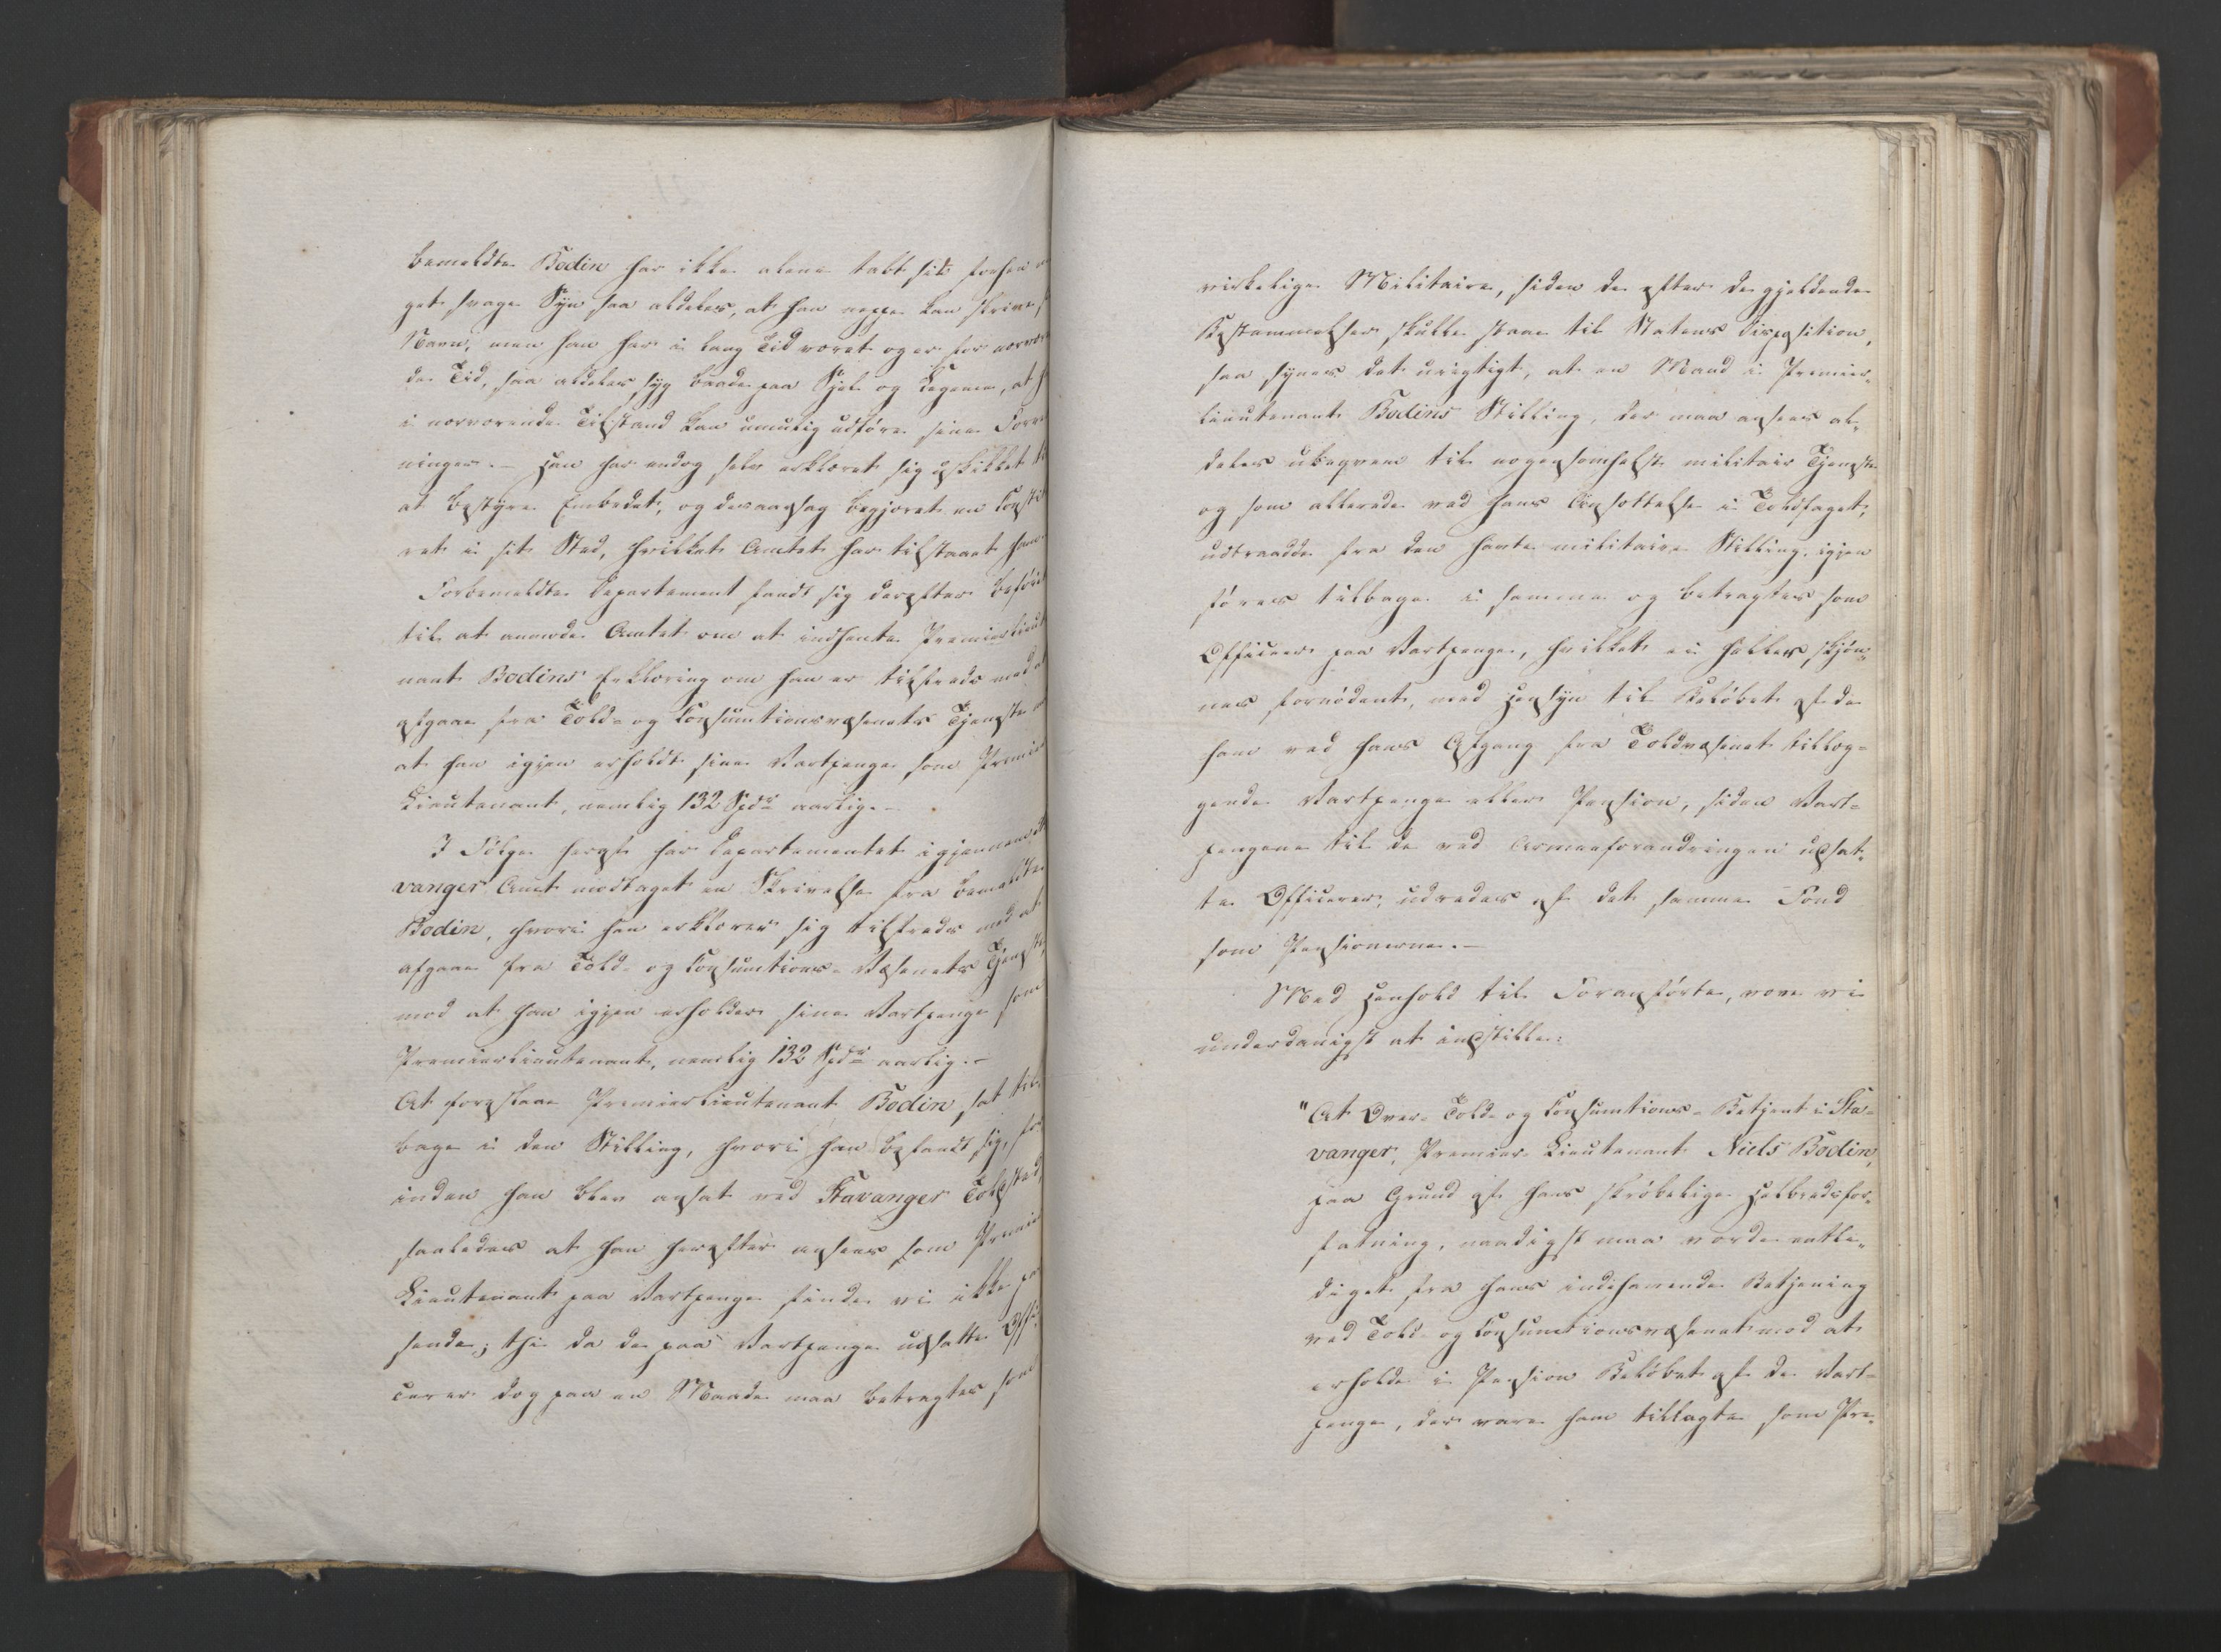 bemeldte Bodin har ikke alene tabt sit forhen
get svage Syn saa aldeles, at han neppe kan skrive
Navn, men han har i lang Tid været og er for nærvæ
de Tid, saa aldeles syg baade paa Sjel og Legeme, at
i nærværende Tilstand kan umulig udføre sine Forre
ninger. – Han har endog selv erklæret sig uskikket
at bestyre Embedet, og desaarsag begjæret en Consti
ret i sit Sted, hvilket Amtet har tilstaaet ham
Forbemeldte Departement fandt sig derefter beføiet
til at anmode Amtet om at indhente Premierlieut
nant Bodins Erklæring om han er tilfreds med
afgaae fra Told- og Consumtionsvæsenets Tjeneste
at han igjen erholdt sine Vartpenge som Premier
Lieutenant, nemlig 132 Spdr aarlig. –
I Følge heraf har Departementet igjennem
vanger Amt modtaget en Skrivelse fra bemeldte
Bodin, hvori han erklærer sig tilfreds med at
afgaae fra Told- og Consumtions-Væsenets Tjeneste,
mod at han igjen erholder sine Vartpenge som
Premierlieutenant, nemlig 132 Spdr aarlig. –
At foreslaae Premierlieutenant Bodin, sat til
bage i den Stilling, hvori han befandt sig, før
inden han blev ansat ved Stavanger Toldsted,
saaledes at han herefter ansees som Premier
Lieutenant paa Vartpenge finde vi ikke pas
sende; thi da de paa Vartpenge udsatte Offi
cerer dog paa en Maade maa betragtes som
virkelige Militaire, siden de efter de gjeldende
Bestemmelser skulle staae til Statens Disposition,
saa synes det urigtigt, at en Mand i Premier-
lieutenant Bodins Stilling, der maa ansees al-
deles ubeqvem til nogensomhelst militair Tjeneste
og som allerede ved hans Ansættelse i Toldfaget,
udtraadte fra den havte militaire Stilling, igjen
føres tilbage i samme og betragtes som
Officeer paa Vartpenge, hvilket ei heller skjøn-
nes fornødent, med Hensyn til Beløbet af de
ham ved hans Afgang fra Toldvæsenet tillæg-
gende Vartpenge eller Pension, siden Vart-
pengene til de ved Armeeforandringen udsat-
te Officerer, udredes af det samme Fond
som Pensionerne. –
Med Henhold til Foranførte, vove vi
underdanigst at indstille:
"At Over-Told- og Consumtions-Betjent i Sta-
vanger, Premier-Lieutenant Niels Bodin,
paa Grund af hans skrøbelige Helbredsfor-
fatning, naadigst maa vorde entle-
diget fra hans indehavende Betjening
ved Told- og Consumtionsvæsenet mod at
erholde i Pension Beløbet af de Vart-
penge, der vare ham tillagte som Pre-